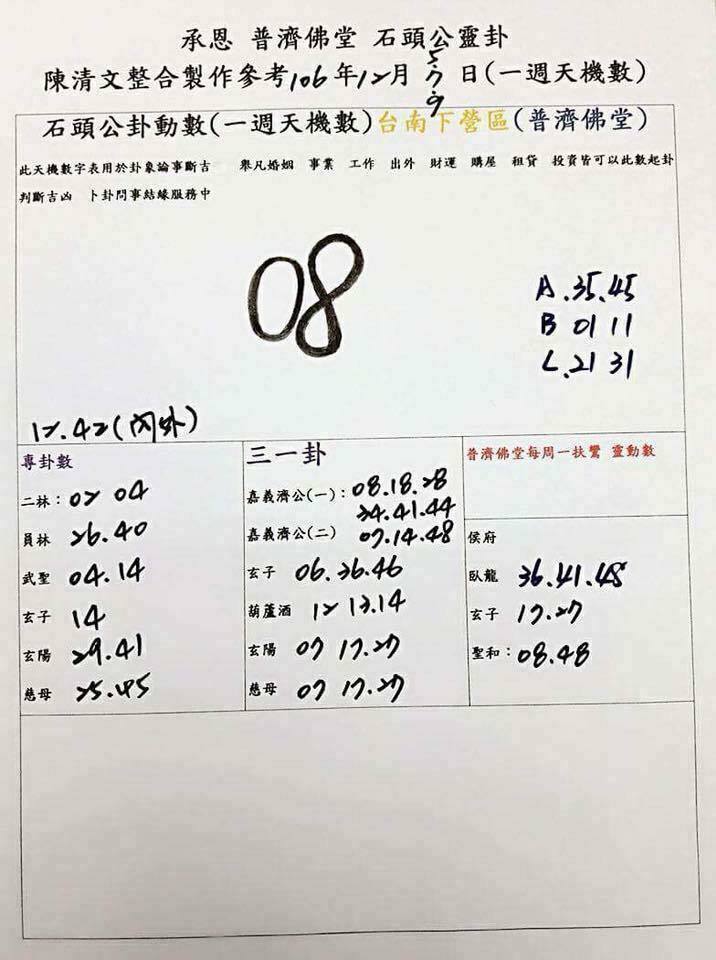 承恩 普濟佛堂 石頭公靈卦
陳清文整合製作參考106年12月5.7.9日(一週天機數)
石頭公卦動數(一週天機數)台南下營區(普濟佛堂)
此天機數字表用於卦象論事斷吉 舉凡婚姻 事業 工作 出外 財運 購屋 租貸 投資皆可以此數起卦
判斷吉凶 卜卦問事結緣服務中
08
A.35.45
B 01 11
C.21 31
12.42(內外)
專卦數
二林：02 04
員林 26.40
武聖 04.14
玄子 14
玄陽 29.41
慈母 25.45
三一卦
嘉義濟公(一)：08.18.28
34.41.44
嘉義濟公(二) 07.14.48
玄子 06.36.46
葫蘆酒 12 13.14
玄陽 07 17.27
慈母 07 17.27
普濟佛堂每周一扶鸞 靈動數
侯府
臥龍 36.41.48
玄子 17.27
聖和：08.48